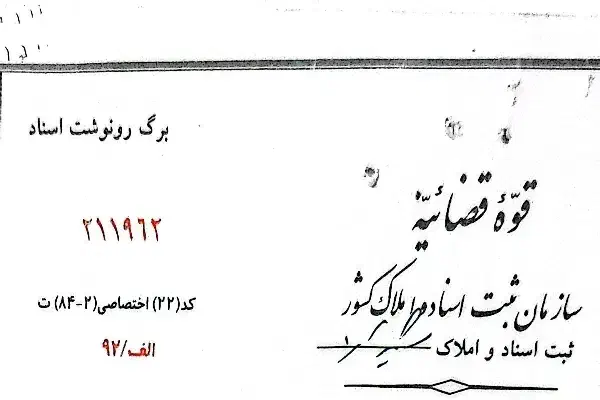 برگ رونوشت اسناد
قوّهٔ قضائیّه
۲۱۱۹۶۲
سازمان ثبت اسناد و املاک کشور
کد(۲۲) اختصاصی(۲-۸۴) ت
ثبت اسناد و املاک
الف/۹۲